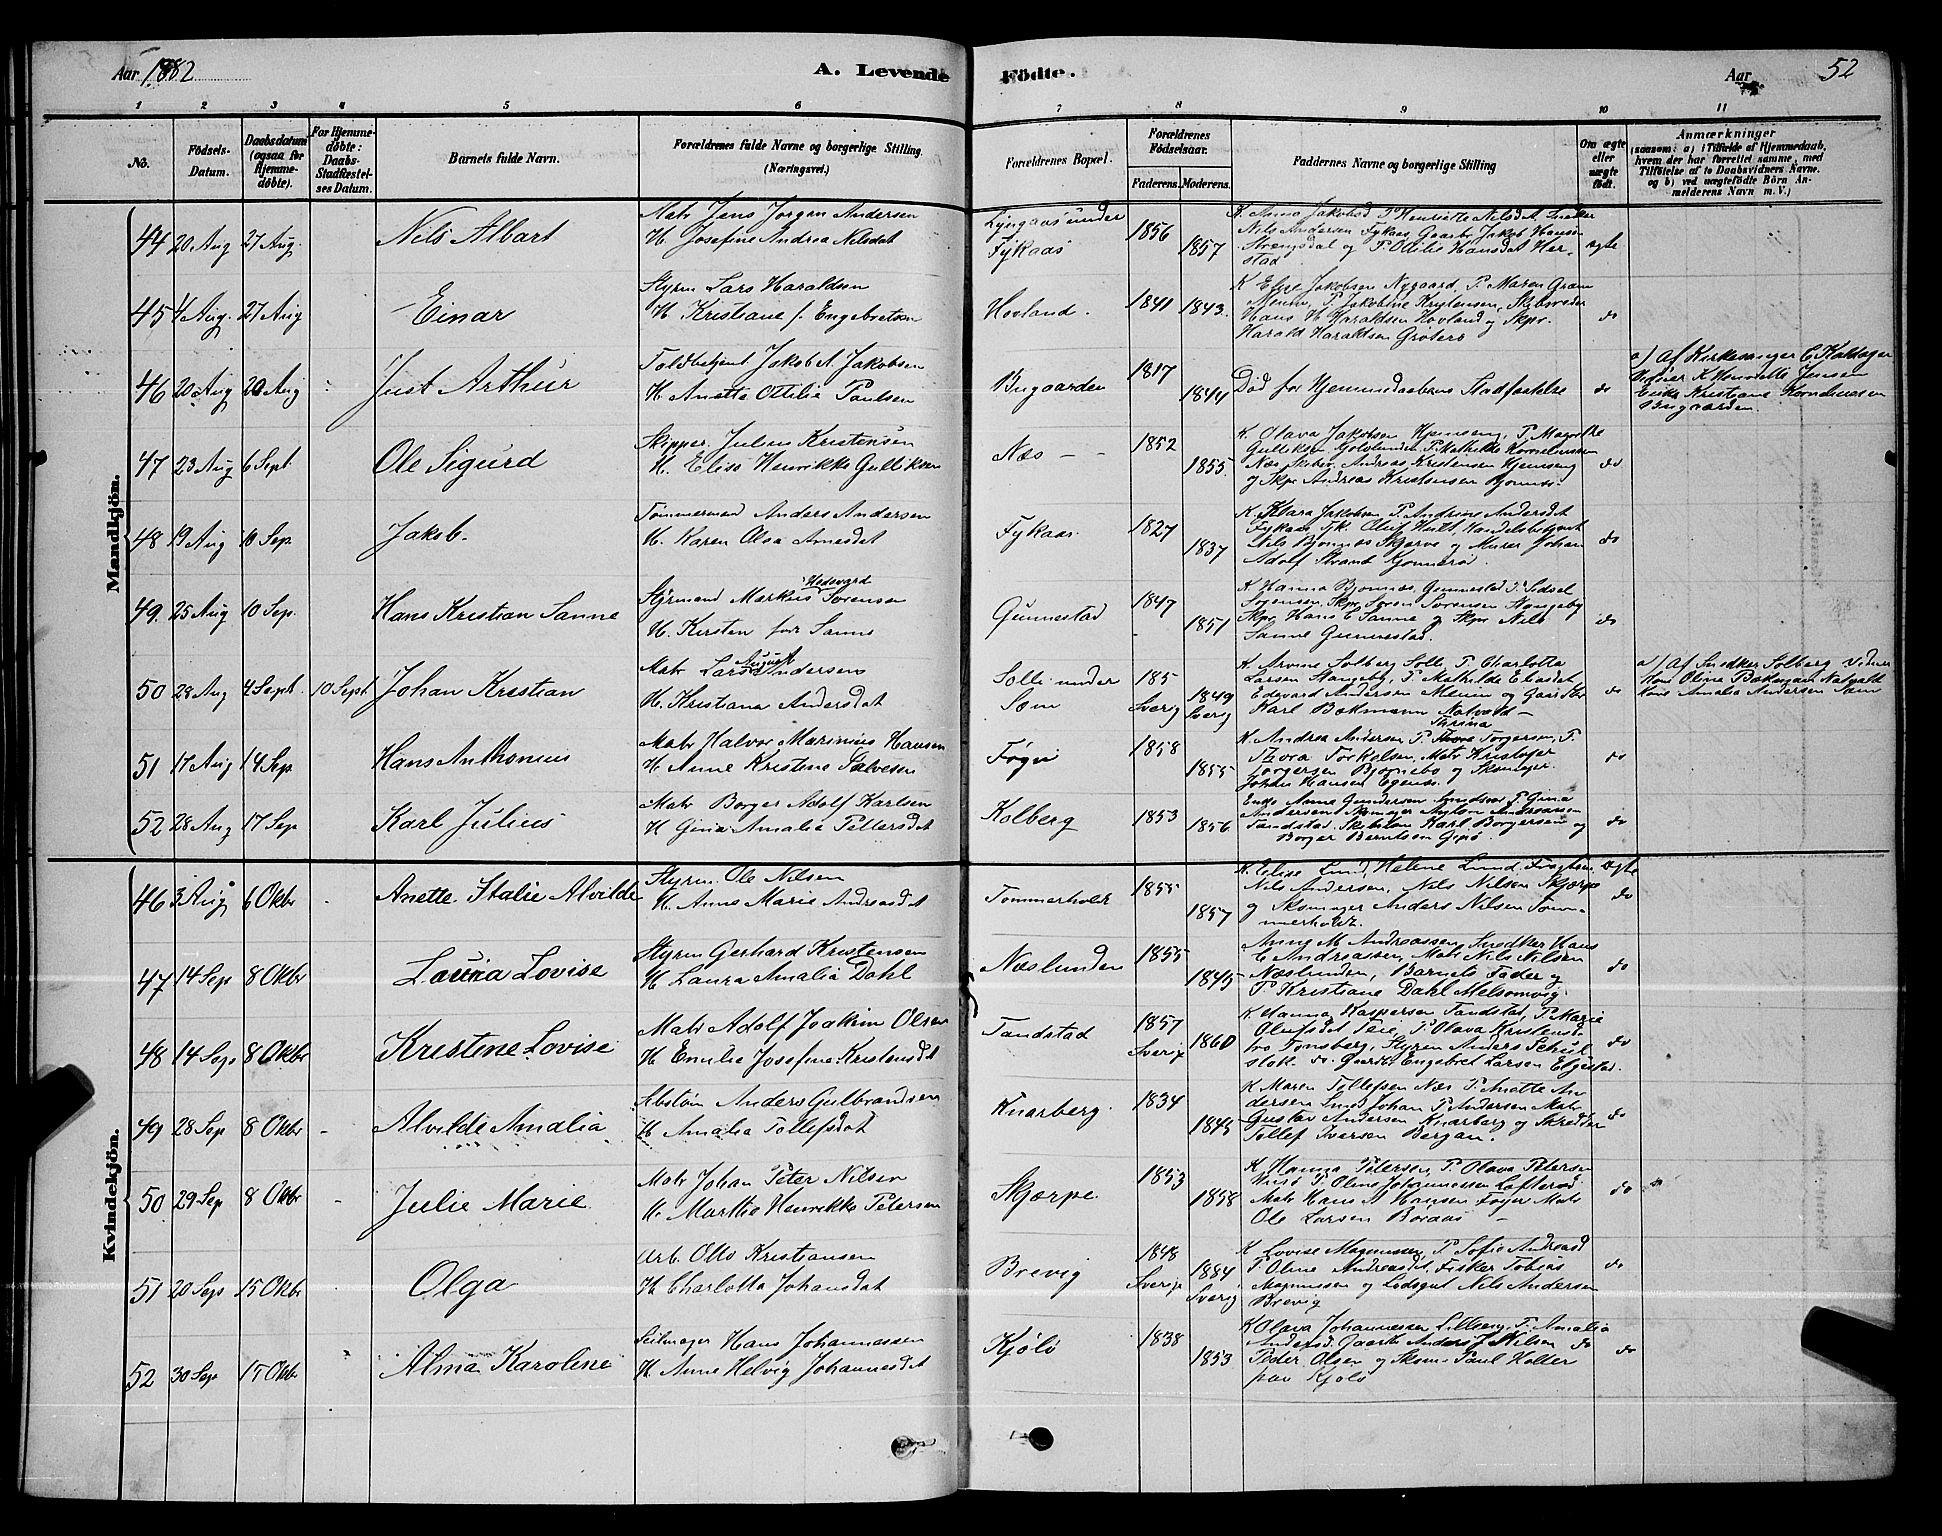 Aar 1882
A. Levende Födte.
Aar
52
1 2 3 4 5 6 7 8 9 10 11
No.
Födsels-Datum.
Daabsdatum (ogsaa for Hjemmedöbte).
For Hjemmedöbte: Daabs-Stadfæstelses Datum.
Barnets fulde Navn.
Forældrenes fulde Navne og borgerlige Stilling. (Næringsvei.)
Forældrenes Bopæl.
Forældrenes Födselsaar.
Faderens. Moderens.
Faddernes Navne og borgerlige Stilling
Om ægte eller uægte födt.
Anmærkninger
(saasom: a) i Tilfælde af Hjemmedaab,
hvem der har forrettet samme, med
Tilföielse af to Daabsvidners Navne.
og b) ved uægtefödte Börn An-
melderens Navn m. V.)
Mandkjön.
44 20 Aug 27 Aug. Nils Albart
Matr Jens Jorgen Andersen
H. Josefine Andrea Nilsdat
Lyngaas under
Fykaas
1856 1857
K. Anna Jakobsd P Henriette Nilsdat
Nils Andersen Fykaas Gaarbr Jakob Hansen
og P Otilie Hansdat Her-
stad
ægte
45 4 Aug. 27 Aug Einar
Styrm Lars Haraldsen
H Kristiane f. Engebretsen
Hovland.
1841 1843.
K Else Jakobsen Nygaard, P. Maren Gran
Meum, P. Jakobine Kristensen,
Hans H Haraldsen Hovland og Skpr.
Harald Haraldsen Grotero
do
46 20 Aug 20 Aug Just Arthur
Toldbetjent Jakob A. Jakobsen
H Anette Ottilie Paulsen
Bugaarden
1817 1844
Död for Hjemmedaabens Stadfæstelse
do
a) Af Kirkesanger C Kaldager
Vidner K Henriette Jensen
Enke Kristiane
Bugaarden
47 23 Aug 6 Sept. Ole Sigurd
Skipper. Julius Kristensen
H. Elise Henrikke Gulliksen
Næs
1852 1855.
K. Olava Jakobsen Hjemseng, P. Magrethe
Gulliksen P Mathilde Kornelinssen
Næs Andreas Kristensen Hjemseng
og Skpr Andreas Kristensen Bjonnes
do
48 19 Aug 10 Sep. Jakob.
Tømmermand Anders Andersen
H. Karen Olea Arnesdat
Fykaas
1827 1837
K. Klara Jakobsen P Andrine Andersdat
Fykaas Oluf Hvidt, Handelsbetjent
Nils Bjonnes Skjerve og Murer Johan
Adolf Strand Gonnerød
do
49. 25 Aug 10 Sep. Hans Kristian Sanne
Styrmand Markus Hedevard Sorensen
H. Kirsten født Sanne
Gunnestad
1847 1851
K. Hanna Bjonnes, Gunnestad P. Sidsel
Sorensen, Skpr Soren Sorensen Stangeby
Skpr Hans E Sanne og Skpr Nils
Sanne Gunnestad.
do
50 28 Aug 4 Sept. 10 Sept. Johan Kristian
Matr Lars August Andersens
H. Kristiana Andersdat
Solli under
Sem
185 Sverig
1849 Sverig
K. Arvine Solberg Solli, P. Charlotte
Larsen Stangeby, P Mathilde Eliasdat
Edevard Andersen Meum og Gaardbr
Karl Bokmann Natvald
do
a) Af Snedker Solberg Vidner
Kone Oline Bokman Natvalt
Kone Amalie Andersen Sem
51 17 Aug 14 Sep Hans Anthonius
Matr Halvor Marinius Hansen
H. Anne Kristine
Føyn
1858 1855
K. Andrea Andersen P. Thrina Torgersen, P.
Thora Torkelsen, Matr Kristofer
Torgersen Bjornebo og Skomager
Johan Hansen Egenes.
do
52 28 Aug 17 Sep Karl Julius
Matr Borger Adolf Karlsen
H Gina Amalia Pettersdat
Kolberg
1853 1856
Enke Anne Gundersen P. Gina
Andersen Skomager Anton Andreassen
Tandstad, Karl Borgersen og
Borger Berntsen Gipø
do
Kvindekjön.
46 3 Aug 6 Okbr Anette Italie Alvilde
Styrm. Ole Nilsen
H. Anne Marie Andreasdat
Tommerholt
1855 1857
K. Elise Lund, Helene Lund,
Nils Andersen, Nils Nilsen Skjærpe
og Skomager Anders Nilsen Tom-
merholdt.
ægte
do
47 14 Sep 8 Okbr Lauria Lovise
Styrm Gerhard Kristensen
H Laura Amalia Dahl
Næslunden
1855 1845
Anne M Andreassen, Snedker Hans
E Andreassen, Matr Nils Nilsen
Næslunden, Barnets Fader og
P Kristiane Dahl Melsomvig
do
48 14 Sep 8 Okbr Kristine Lovise
Matr Adolf Joakim Olsen
H Emilie Josefine Kristensdt
Tandstad
1857 Sverig
1860
K Hanna Kaspersen Tandstad, P. Marie
Olufsdat Teie, P. Olava Kristensd.
bro Tonsberg, Styrm Anders
do. Gaardbr Engebret Larsen Elgestad.
do
49 28 Sep 8 Okbr Alvilde Amalia
Anders Gulbrandsen
H Amalia Tollefsdat
Knarberg.
1834 1845
K Maren Tollefsen Næs P. Anette An-
dersen Lund, Johan P. Andersen Matr
Gustav Andersen Knarberg og Skredder
Tollef Iversen Bergan.
do
50 29 Sep 8 Okbr Julie Marie
Matr Johan Peter Nilsen
H. Marthe Henrikke Petersen
Skjærpe
1853 1858
K Hanna Petersen, P. Olava Petersen
P Oline Johannessen Lofterød
Matr Hans A Hansen Foyn Matr
Ole Larsen Boraas
do
51 20 Sep 15 Okbr Olga
Arb. Otto Kristiansen
H Charlotta Johansdat
Brevig
1848 Sverige
1884 Sverig
K Lovise Magnussen, P Sofie Andreasd
P. Oline Andreasdt, Fisker Tobias
Magnussen og Lodsgut Nils Andersen
Brevig
do
52 30 Sep 15 Okbr Alma Karoline
Seilmager Hans Johannessen
H. Anne Helvig Johannesdat
Kjölö
1838 1853
K Olava Johannessen P. Amalia
Andersd. Gaardbr Anders J Nilsen do
Peder Olsen og Skom. Paul Holter
paa Kjölö
do